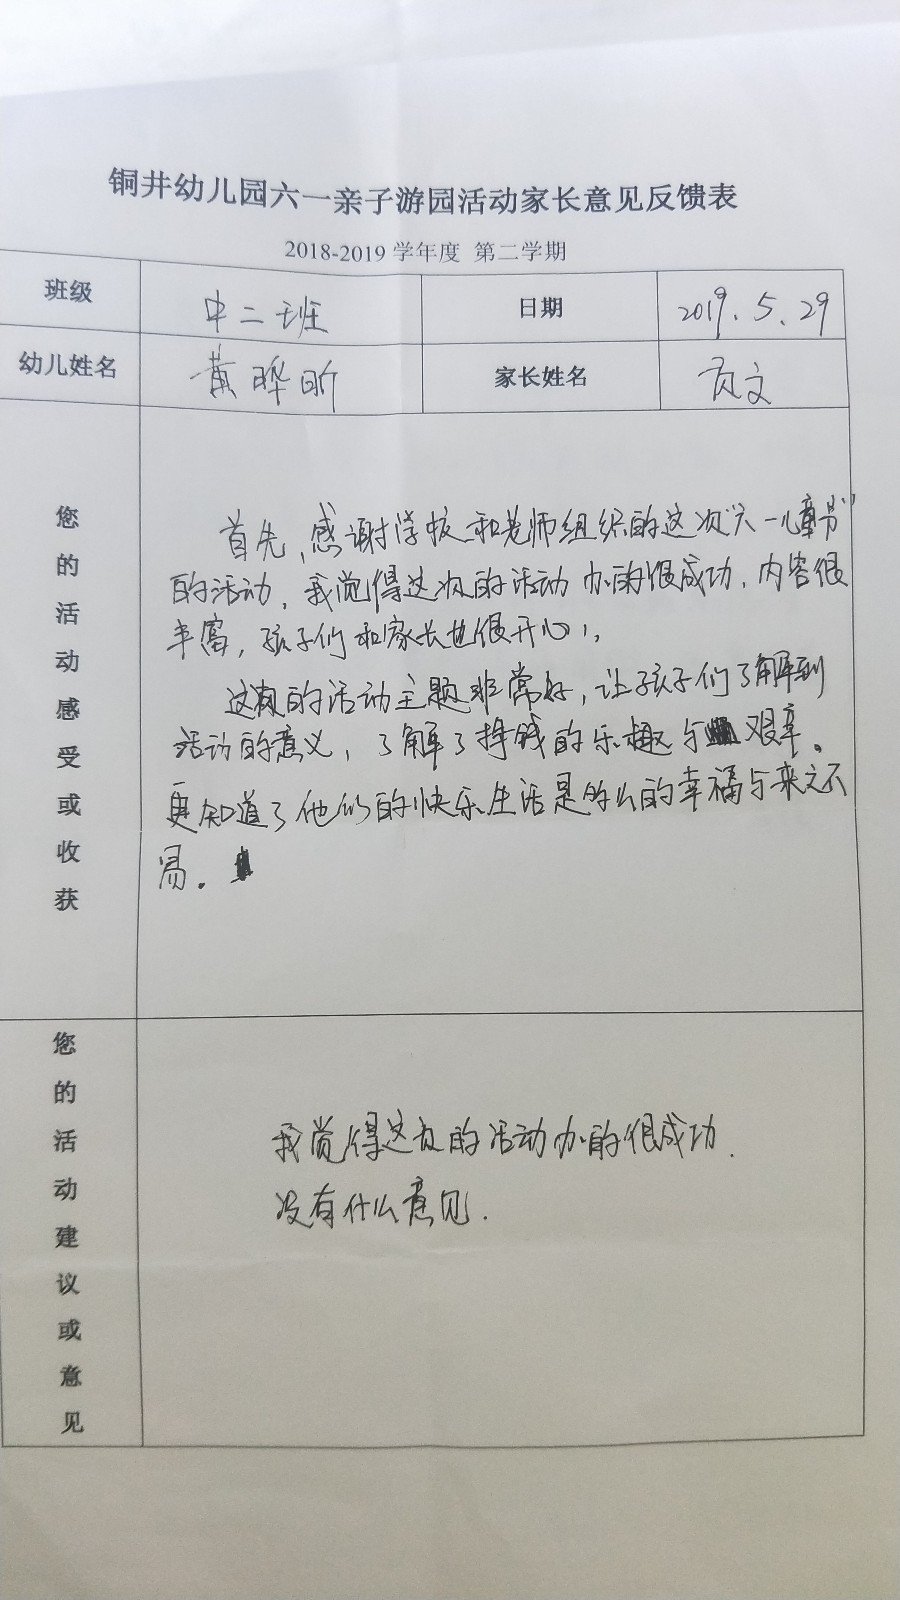 铜井幼儿园六一亲子游园活动家长意见反馈表
2018-2019 学年度 第二学期
班级 中二班 日期 2019.5.29
幼儿姓名 黄晔昕 家长姓名 贡文
您的活动感受或收获
首先,感谢学校和老师组织的这次“六一儿童节”
的活动,我觉得这次的活动办的很成功,内容很
丰富,孩子们和家长也很开心,
这次的活动主题非常好,让孩子们了解到
活动的意义,了解了挣钱的乐趣与艰辛。
更知道了他们的快乐生活是多么的幸福与来之不
易。
您的活动建议或意见
我觉得这次的活动办的很成功.
没有什么意见.